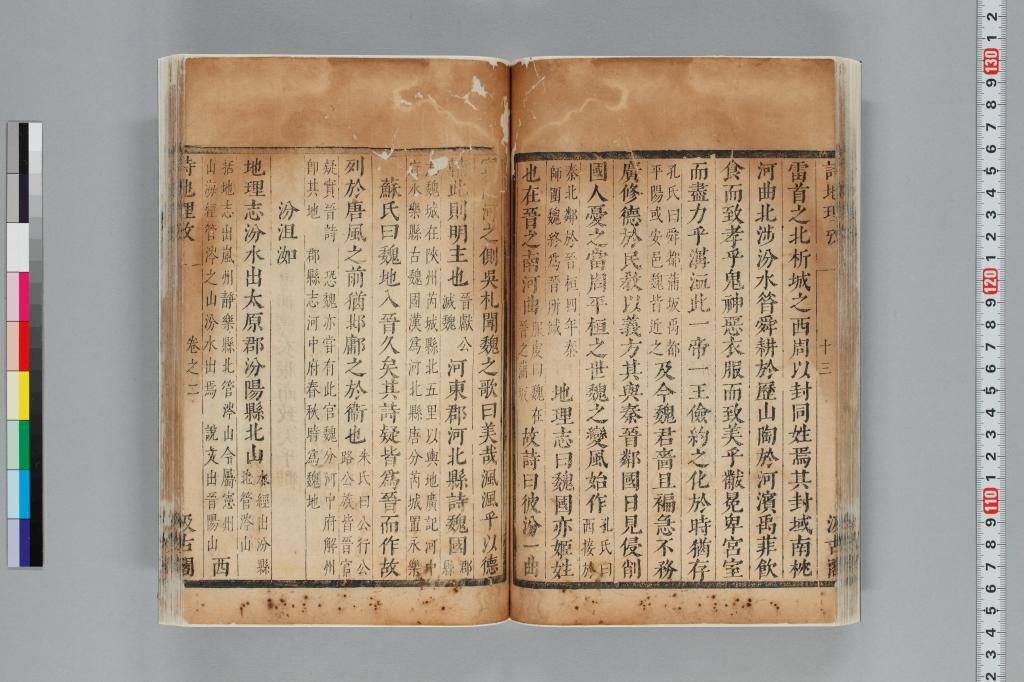 詩地理攷 十三 汲古閣
雷首之北析城之西周以封同姓焉其封域南枕
河曲北涉汾水昔舜耕於歷山陶於河濱禹菲飲
食而致孝乎鬼神惡衣服而致美乎黻冕卑宮室
而盡力乎溝洫此一帝一王儉約之化於時猶存
孔氏曰舜都蒲坂禹都
平陽或安邑魏皆近之
及今魏君嗇且褊急不務
廣修德於民教以義方其與秦晉鄰國日見侵削
國人憂之當周平桓之世魏之變風始作
孔氏曰
西接於
秦北鄰於晉桓四年秦
師圍魏終為晉所滅
地理志曰魏國亦姬姓
也在晉之南河曲
服虔曰魏在
晉之蒲坂
故詩曰彼汾一曲
河之側吳札聞魏之歌曰美哉渢渢乎以德
此則明主也
晉獻公
滅魏
河東郡河北縣詩魏國
郡
縣
魏城在陜州芮城縣北五里以輿地廣記河中
永樂縣古魏國漢為河北縣唐分芮城置永樂
蘇氏曰魏地入晉久矣其詩疑皆為晉而作故
列於唐風之前猶邶鄘之於衛也
朱氏曰公行公
路公族皆晉官
疑實晉詩 恐魏亦嘗有此官魏分河中府解州
即其地 郡縣志河中府春秋時為魏地
汾沮洳
地理志汾水出太原郡汾陽縣北山
水經出汾縣
北管涔山
括地志出嵐州靜樂縣北管涔山今屬憲州
山海經管涔之山汾水出焉 說文出晉陽山
西
詩地理攷 卷之二 汲古閣